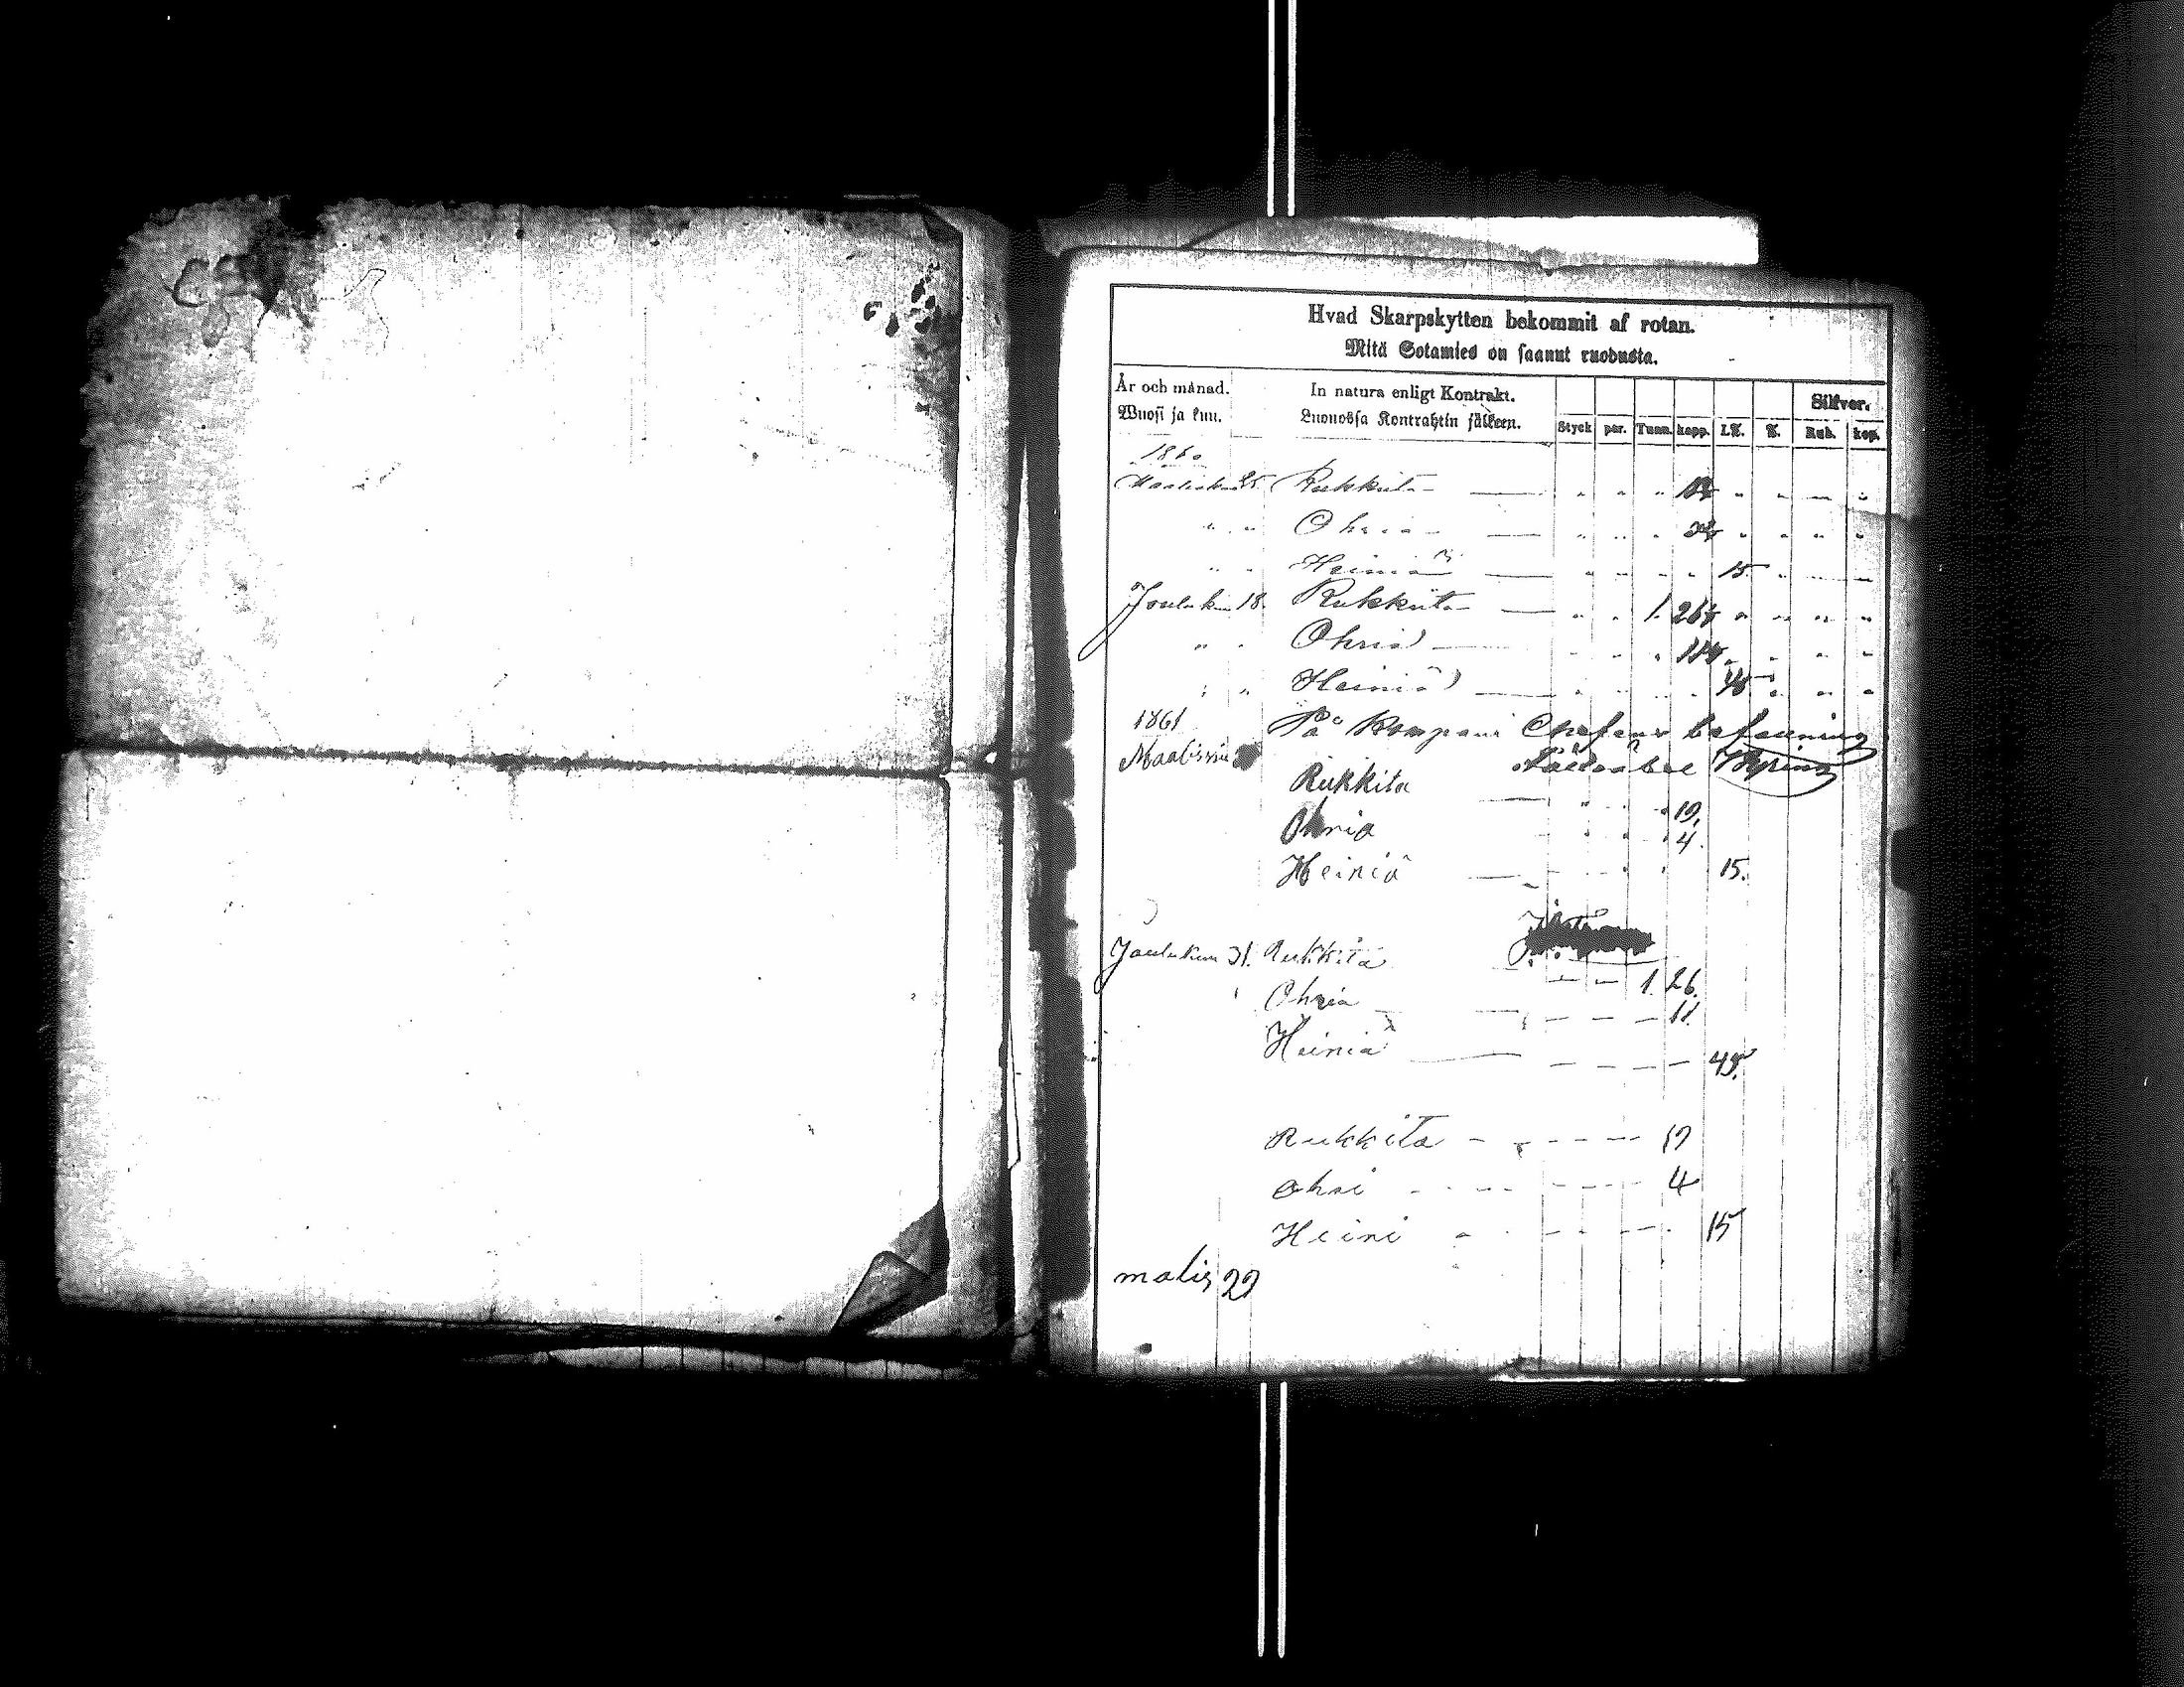 Hvad Skarpskytten bekommit af rotan.
Mitä Sotamies on saanut ruodusta.
År och månad. In natura enligt Kontrakt. Silfver.
Wuosi ja kuu. Luonossa Kontrahtin jälkeen. Styck par. Tunn. kapp. L℔. ℔. Rub. kop.
1860
25. Rukkiita
" " Ohria
" " Heiniä 15
Joulukuu 18. Rukkiita 1. 26
" " Ohria
" " Heiniä
1861 På Kompani Chefens befallning
Maalissuu
Rukkita 19.
Ohria 4.
Heiniä 15.
Joulukuu 31. Rukkita 1. 26.
Ohria 11.
Heiniä 45.
Rukkita 19
Ohri 4
Heini 15
malis 29